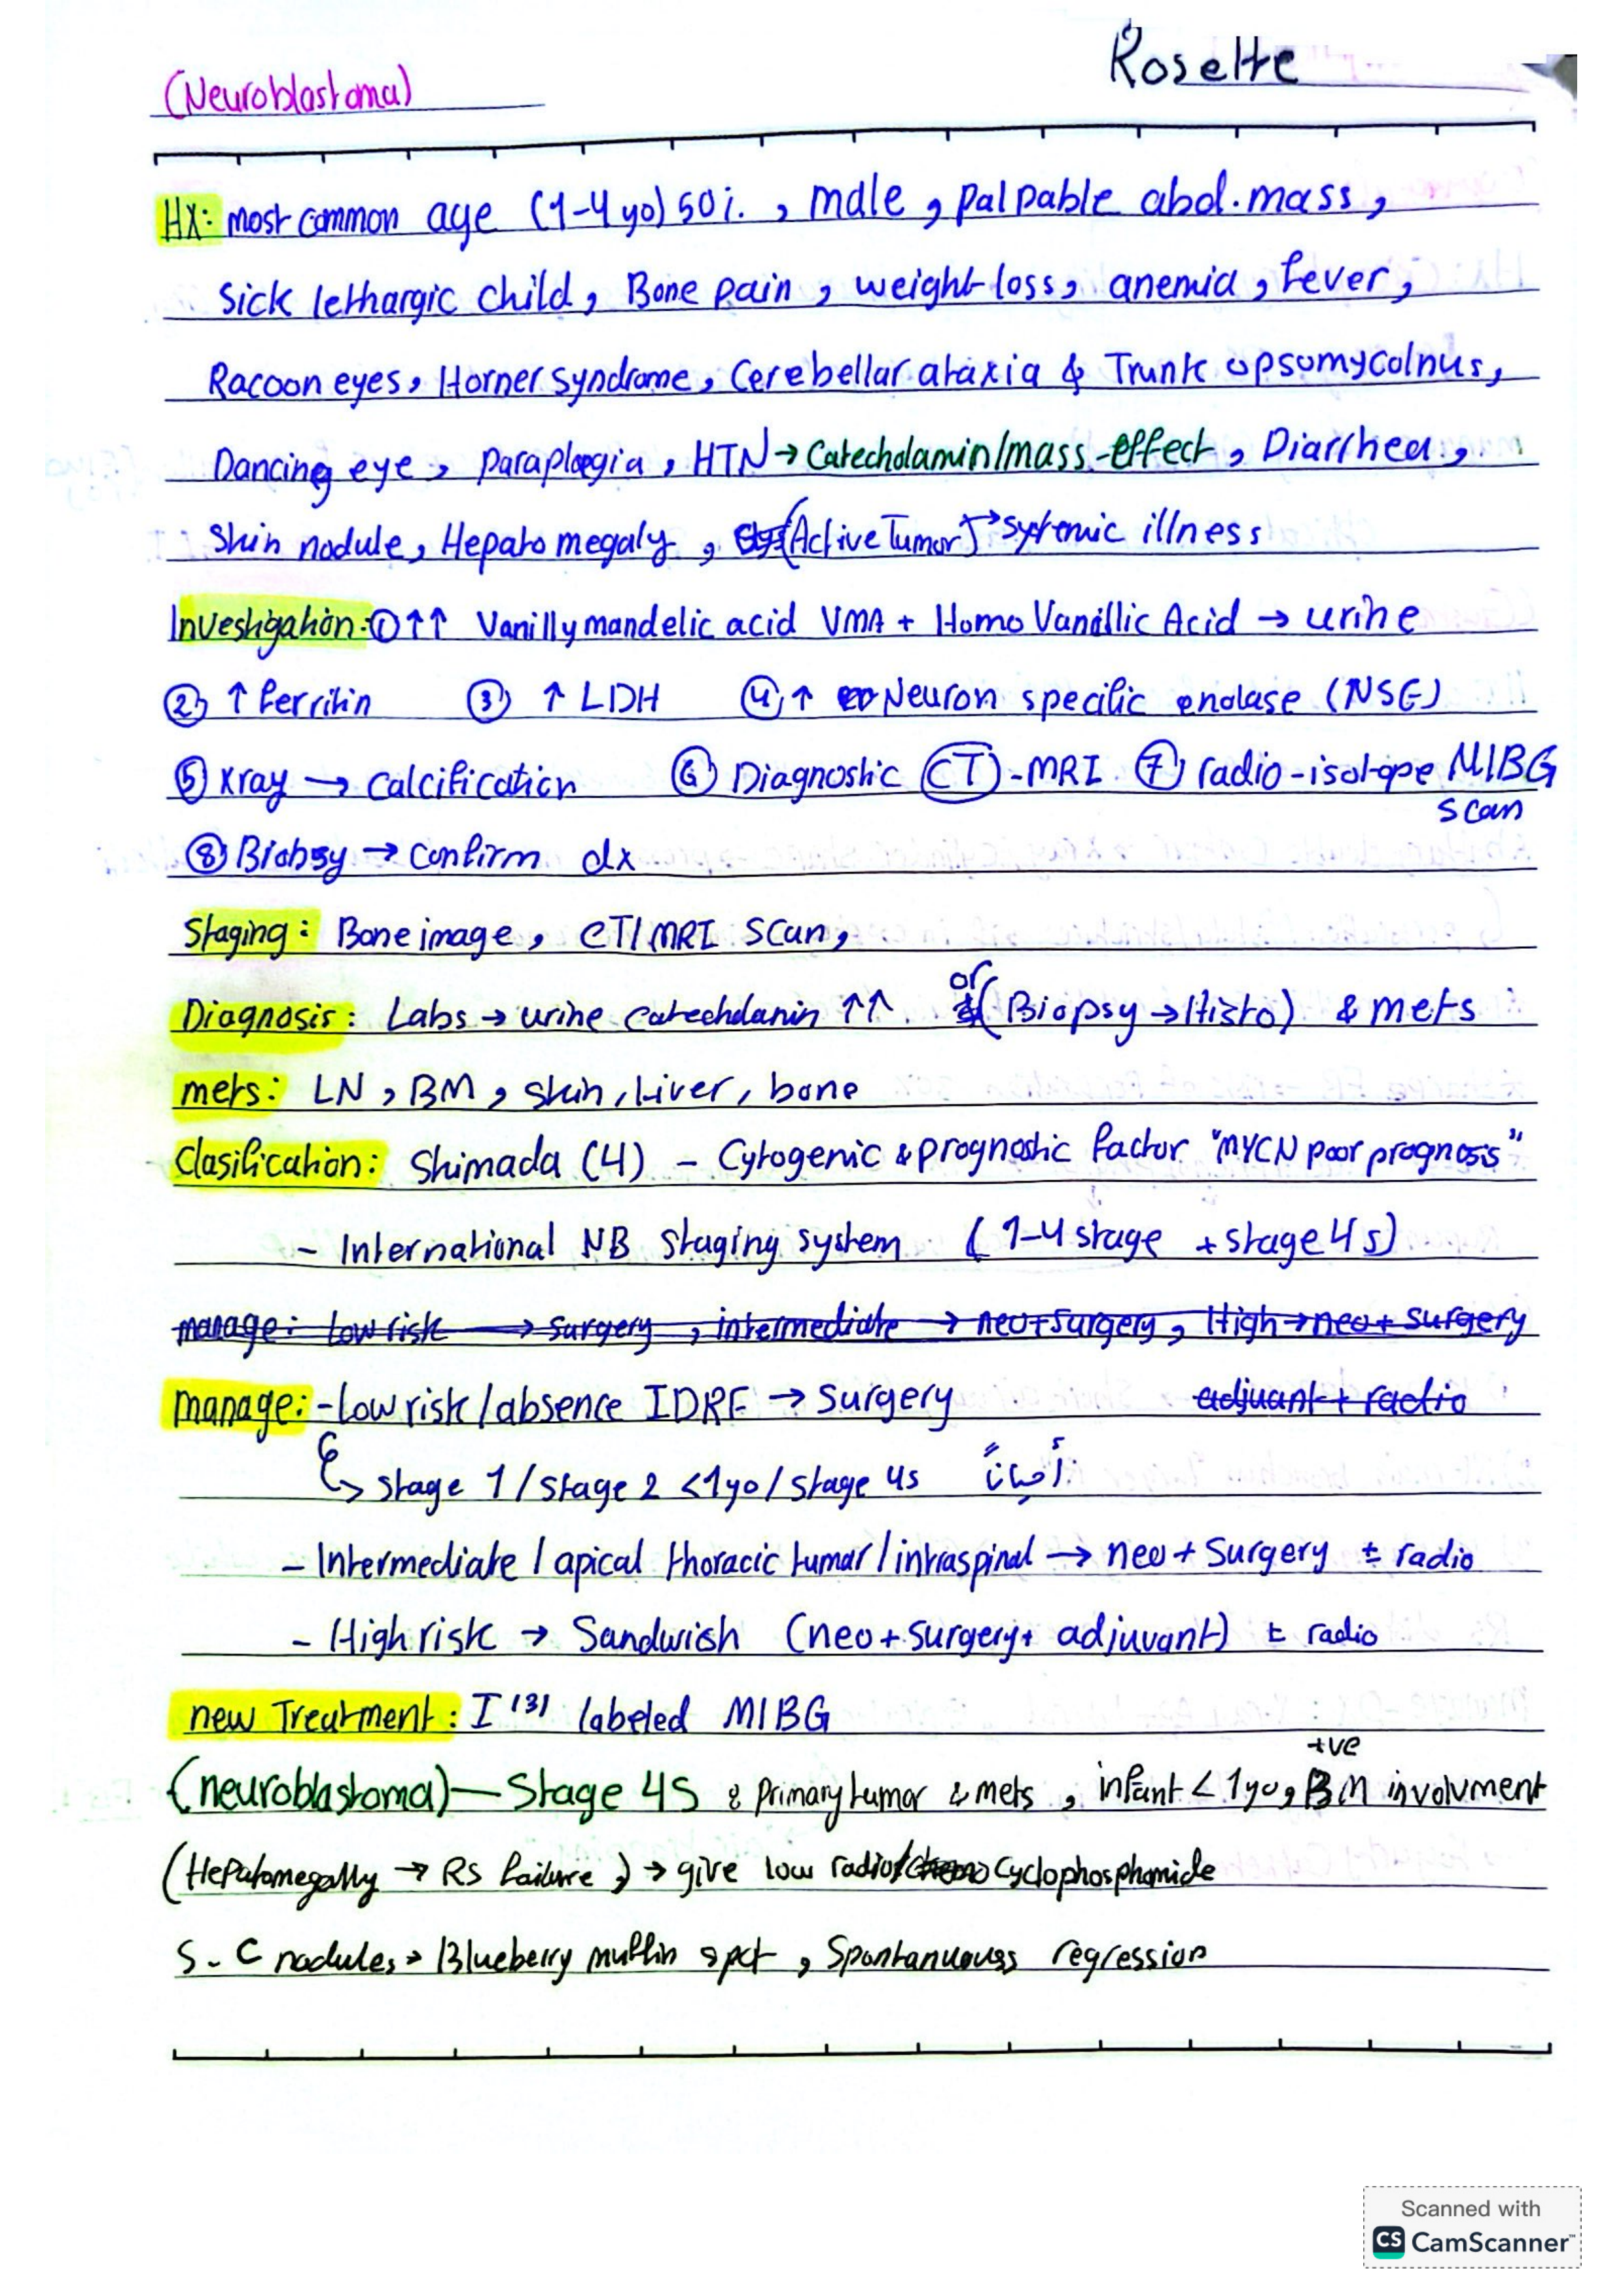 Rosette
(Neuroblastoma)
HX: most common age (1-4 yo) 50%. , male , palpable abd. mass ,
Sick lethargic child , Bone pain , weight loss , anemia , fever ,
Racoon eyes , Horner syndrome , Cerebellar ataxia & Trunk opsomycolnus ,
Dancing eye , paraplegia , HTN → Catecholamin/mass-effect , Diarrhea ,
Skin nodule , Hepatomegaly , (Active Tumor) → systemic illness
Investigation: ① ↑↑ Vanillymandelic acid VMA + Homo Vanillic Acid → urine
② ↑ ferritin ③ ↑ LDH ④ ↑ Neuron specific enolase (NSE)
⑤ Xray → Calcification ⑥ Diagnostic CT - MRI ⑦ radio-isotope MIBG
scan
⑧ Biobsy → Confirm dx
Staging: Bone image , CT/MRI Scan ,
Diagnosis: Labs → urine catecholamin ↑↑ or (Biopsy → Histo) & mets
mets: LN , BM , skin , Liver , bone
Clasification: Shimada (4) - Cytogenic & prognostic factor "MYCN poor prognosis"
- International NB staging system (1-4 stage + stage 4s)
manage: Low risk → surgery , intermediate → neo+surgery , High → neo + surgery
manage: - Low risk/absence IDRF → Surgery adjuant + radio
↳ stage 1 / stage 2 <1yo / stage 4s أحياناً
- Intermediate / apical thoracic tumar / intraspinal → neo + Surgery ± radio
- High risk → Sandwish (neo + surgery + adjuvant) ± radio
new Treatment: I 131 labeled MIBG
+ve
(neuroblastoma) — Stage 4S : Primary tumor & mets , infant < 1yo , BM involvment
(Hepatomegally → RS failure ) → give low radio/ Cyclophosphamide
S.C nodules → Blueberry muffin spot , Spontanuouss regression
Scanned with
CS CamScanner